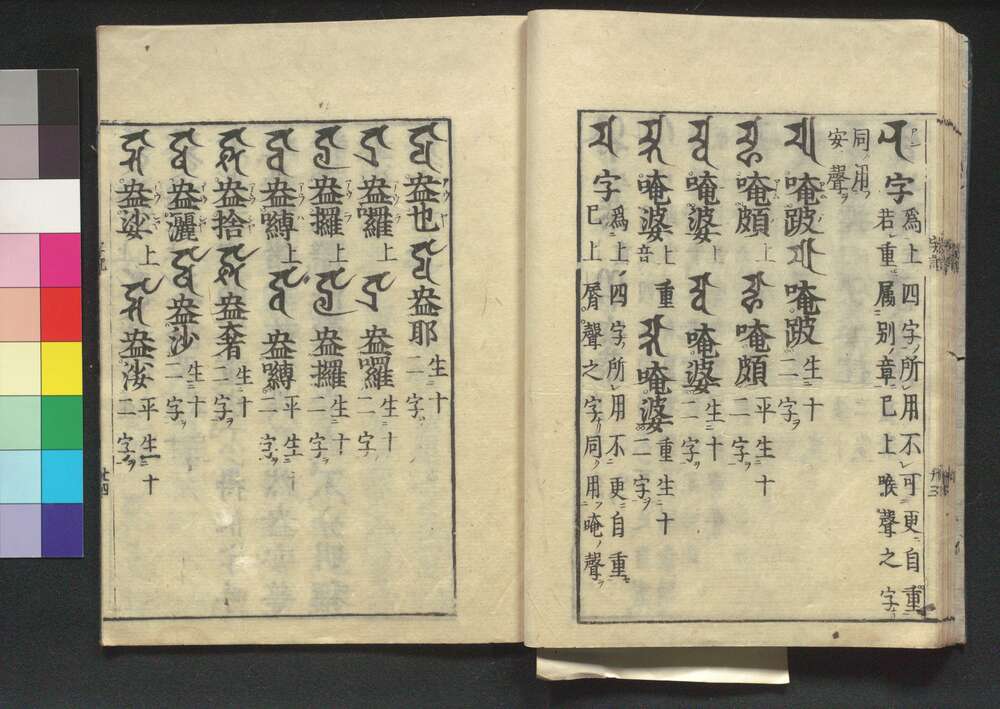 𑖡 字 爲上四字所用不可更自重
若重属別章已上喉聲之字
同用安聲
𑖦𑖿𑖢 唵跛 𑖦𑖿𑖢𑖯 唵跛 生十二字
𑖦𑖿𑖣 唵頗 上 𑖦𑖿𑖣𑖯 唵頗 平生十二字
𑖦𑖿𑖤 唵婆 上 𑖦𑖿𑖤𑖯 唵婆 生十二字
𑖦𑖿𑖥 唵婆 上音 重 𑖦𑖿𑖥𑖯 唵婆 重生十二字
𑖦 字 爲上四字所用不更自重
已上脣聲之字同用唵聲
𑖒𑖿𑖧 盎也 𑖒𑖿𑖧𑖯 盎耶 生十二字
𑖒𑖿𑖨 盎囉 上 𑖒𑖿𑖨𑖯 盎囉 生十二字
𑖒𑖿𑖩 盎攞 上 𑖒𑖿𑖩𑖯 盎攞 生十二字
𑖒𑖿𑖪 盎嚩 上 𑖒𑖿𑖪𑖯 盎嚩 平生十二字
𑖒𑖿𑖫 盎捨 𑖒𑖿𑖫𑖯 盎奢 生十二字
𑖒𑖿𑖬 盎灑 𑖒𑖿𑖬𑖯 盎沙 生十二字
𑖒𑖿𑖭 盎娑 上 𑖒𑖿𑖭𑖯 盎娑 平生十二字
廿四